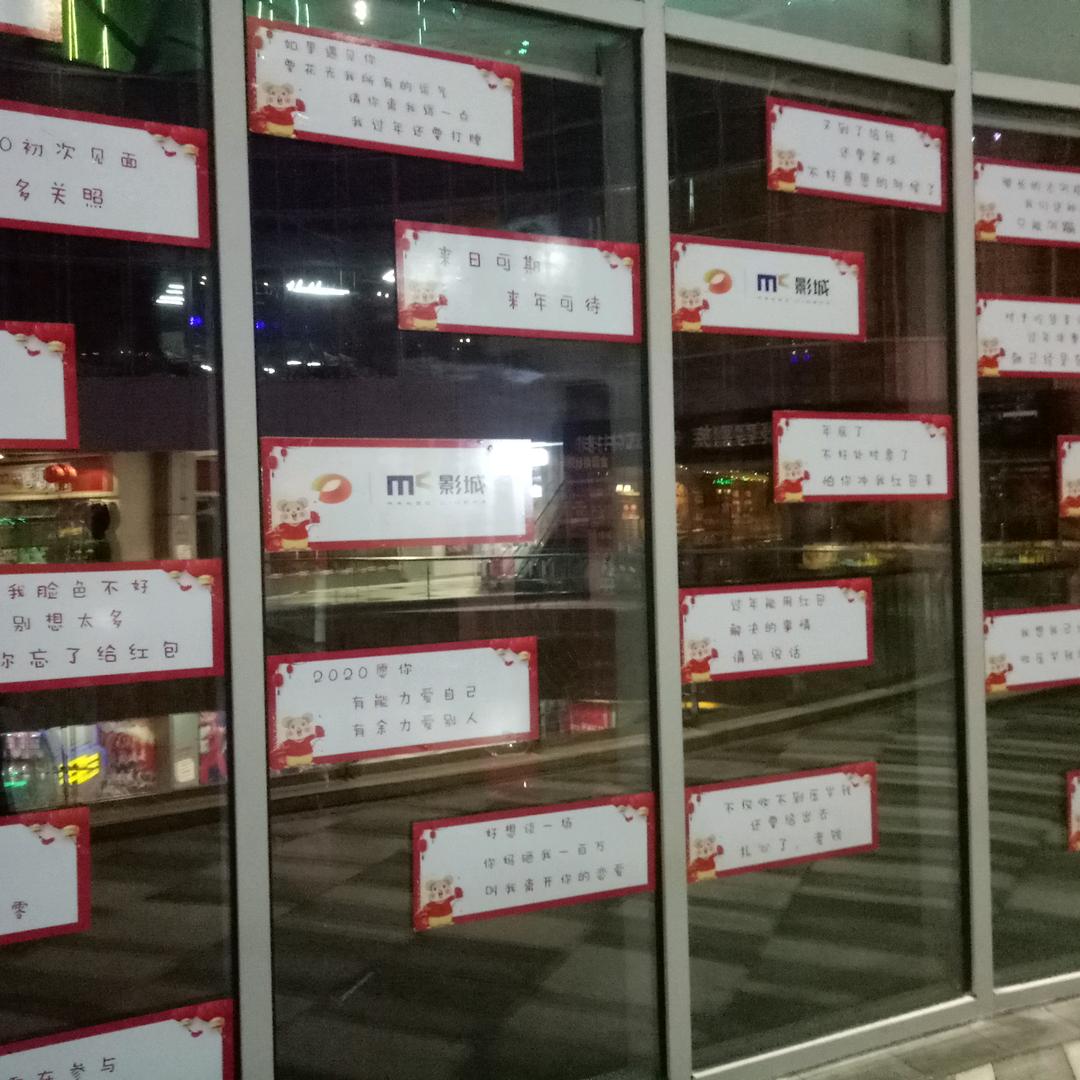 0初次见面
多关照
我脸色不好
别想太多
你忘了给红包
零
在参与
如果遇见你
要花去我所有的运气
请你离我远一点
我过年还要打牌
来日可期
来年可待
MK 影城
2020愿你
有能力爱自己
有余力爱别人
好想谈一场
你妈砸我一百万
叫我离开你的恋爱
又到了给钱
还要装作
不好意思的时候了
MK 影城
年底了
不好处对象了
怕你冲我红包来
过年能用红包
解决的事情
请别说话
不仅收不到压岁钱
还要给出去
扎心了，老铁
我们这种
过年